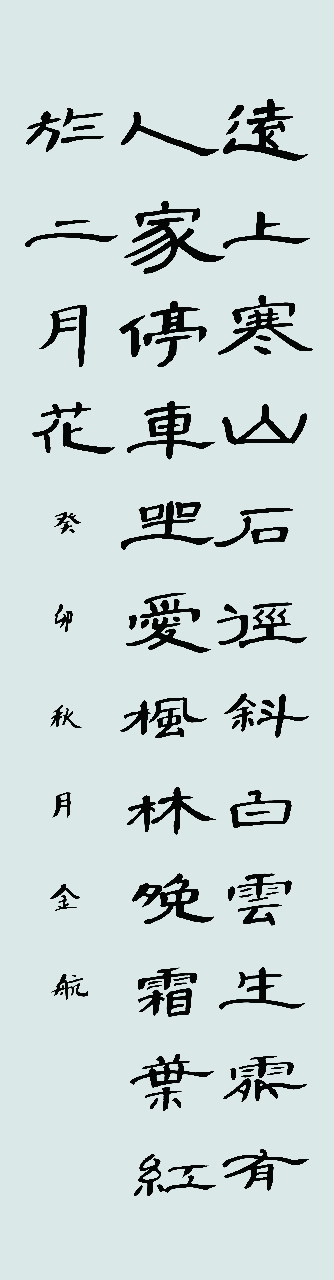 遠上寒山石徑斜白雲生處有
人家停車坐愛楓林晚霜葉紅
於二月花癸卯秋月金航